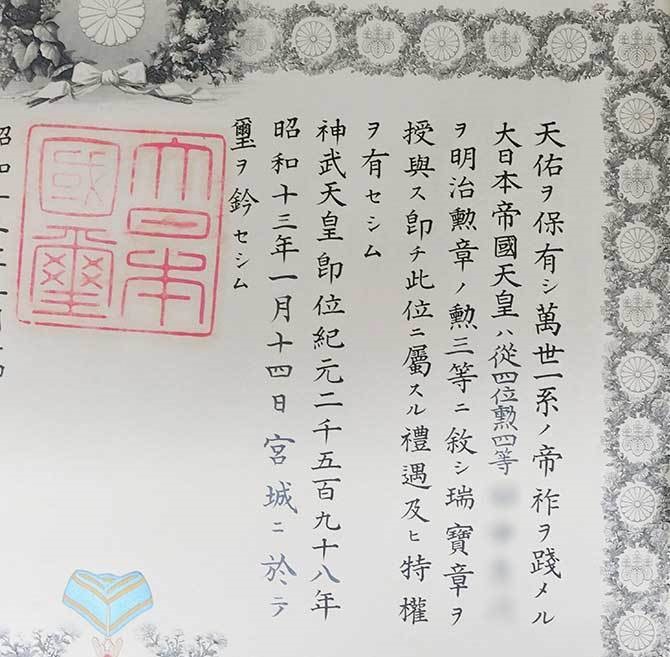 天佑ヲ保有シ萬世一系ノ帝祚ヲ踐メル
大日本帝國天皇ハ從四位勲四等
ヲ明治勲章ノ勲三等ニ敘シ瑞寶章ヲ
授與ス卽チ此位ニ屬スル禮遇及ヒ特權
ヲ有セシム
神武天皇卽位紀元二千五百九十八年
昭和十三年一月十四日宮城ニ於テ
璽ヲ鈐セシム
大日本
國璽